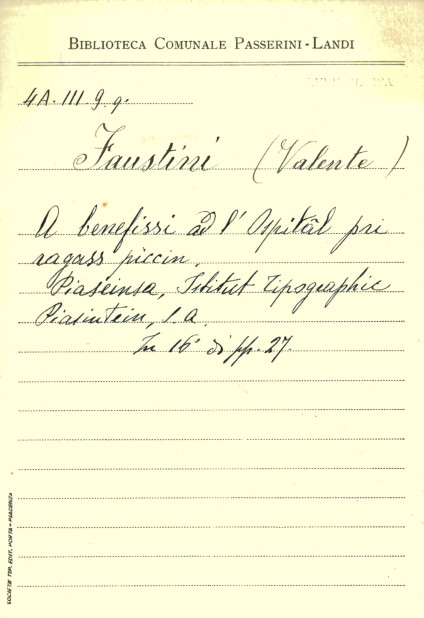 BIBLIOTECA COMUNALE PASSERINI-LANDI
4A.III.9.9.
Faustini (Valente)
A benefissi ad l' Ospitäl pri
ragass piccin.
Piaseinsa, Istitut Tipographic
Piasintein, s.a.
In 16° di pp. 27.
SOCIETÀ TIP. EDIT. PORTA - PIACENZA